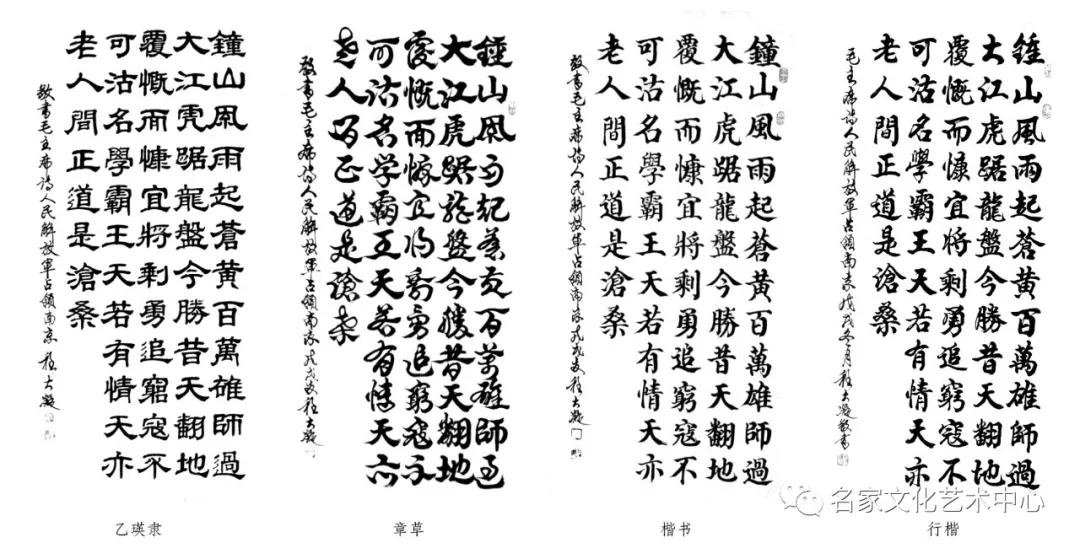 鐘山風雨起蒼黃百萬雄師過
大江虎踞龍盤今勝昔天翻地
覆慨而慷宜將剩勇追窮寇不
可沽名學霸王天若有情天亦
老人間正道是滄桑
敬書毛主席詩人民解放軍占領南京
乙瑛隶
鍾山風雨起蒼黃百萬雄師過
大江虎踞龍盤今勝昔天翻地
覆慨而慷宜將剩勇追窮寇不
可沽名学霸王天若有情天亦
老人間正道是滄桑
敬書毛主席詩人民解放軍占領南京戊戌冬
章草
鐘山風雨起蒼黃百萬雄師過
大江虎踞龍盤今勝昔天翻地
覆慨而慷宜將剩勇追窮寇不
可沽名學霸王天若有情天亦
老人間正道是滄桑
敬書毛主席詩人民解放軍占領南京戊戌冬
楷书
鍾山風雨起蒼黃百萬雄師過
大江虎踞龍盤今勝昔天翻地
覆慨而慷宜將剩勇追窮寇不
可沽名學霸王天若有情天亦
老人間正道是滄桑
毛主席詩人民解放軍占領南京戊戌冬月
行楷
名家文化艺术中心